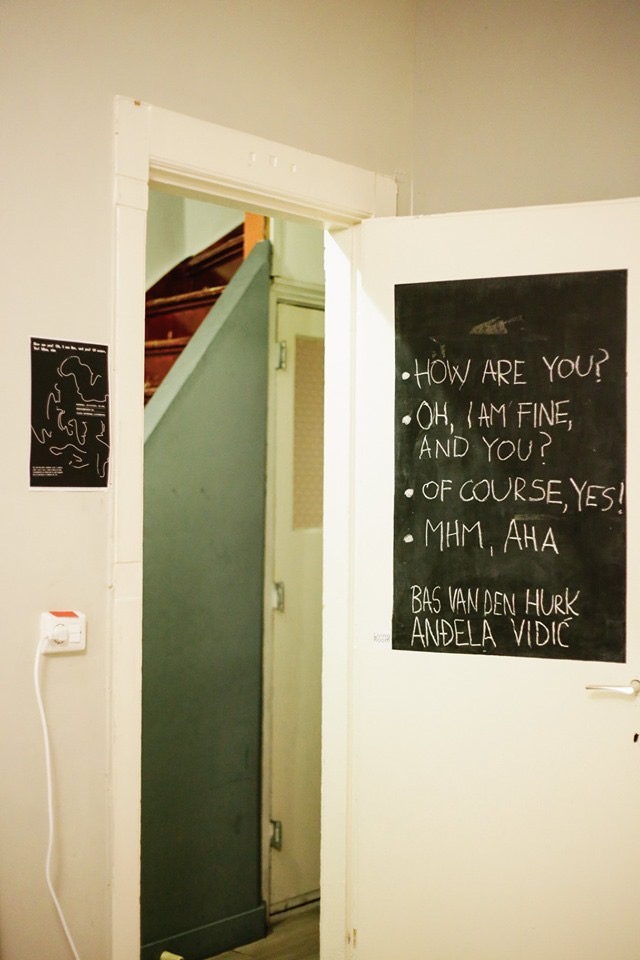 • HOW ARE YOU?
• OH, I AM FINE,
AND YOU?
• OF COURSE, YES!
• MHM, AHA
BAS VAN DEN HURK
ANĐELA VIDIĆ